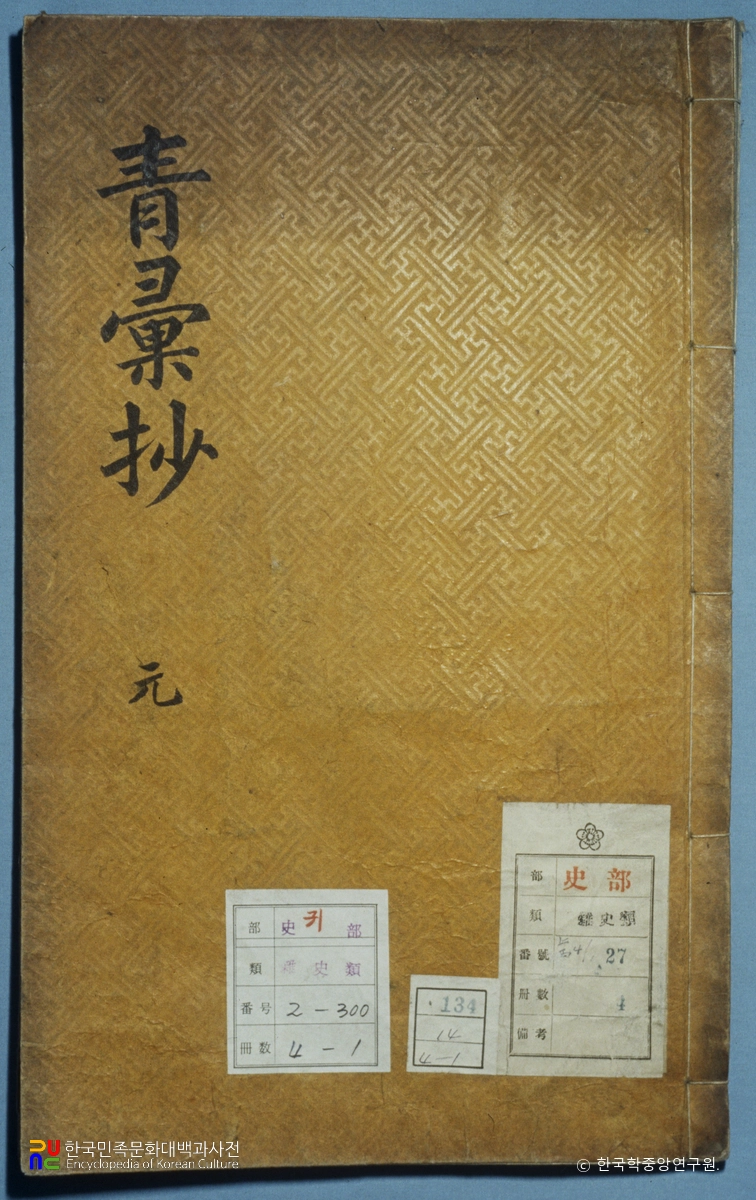 青彙抄
元
部 史 귀 部
類 雜史類
番号 2-300
冊数 4-1
134
14
4-1
部 史部
類 雜史類
番號 27
冊數 4
備考
한국민족문화대백과사전
Encyclopedia of Korean Culture
© 한국학중앙연구원.